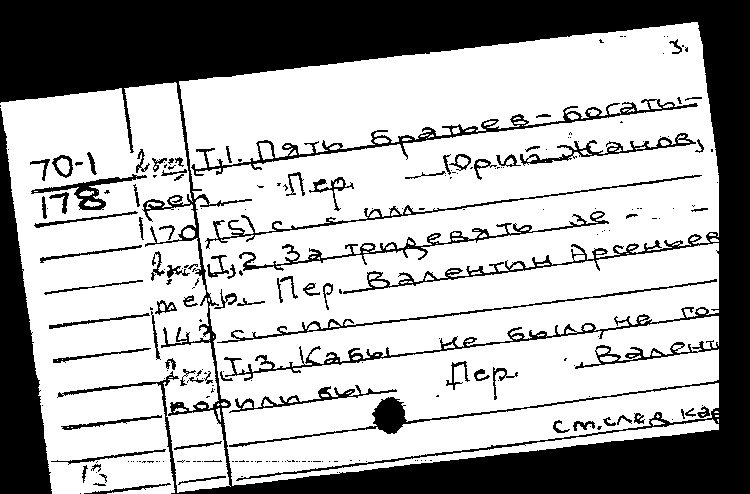 3.
70-1 2экз. I,1. Пять братьев-богаты-
178 рей. Пер. Юрий Жанов,
170,[5] с. с илл.
2экз. I,2. За тридевять зе-
мель. Пер. Валентин Арсеньев
143 с. с илл
2экз. I,3. Кабы не было, не го-
ворили бы. Пер. Валент
см. след кар
13